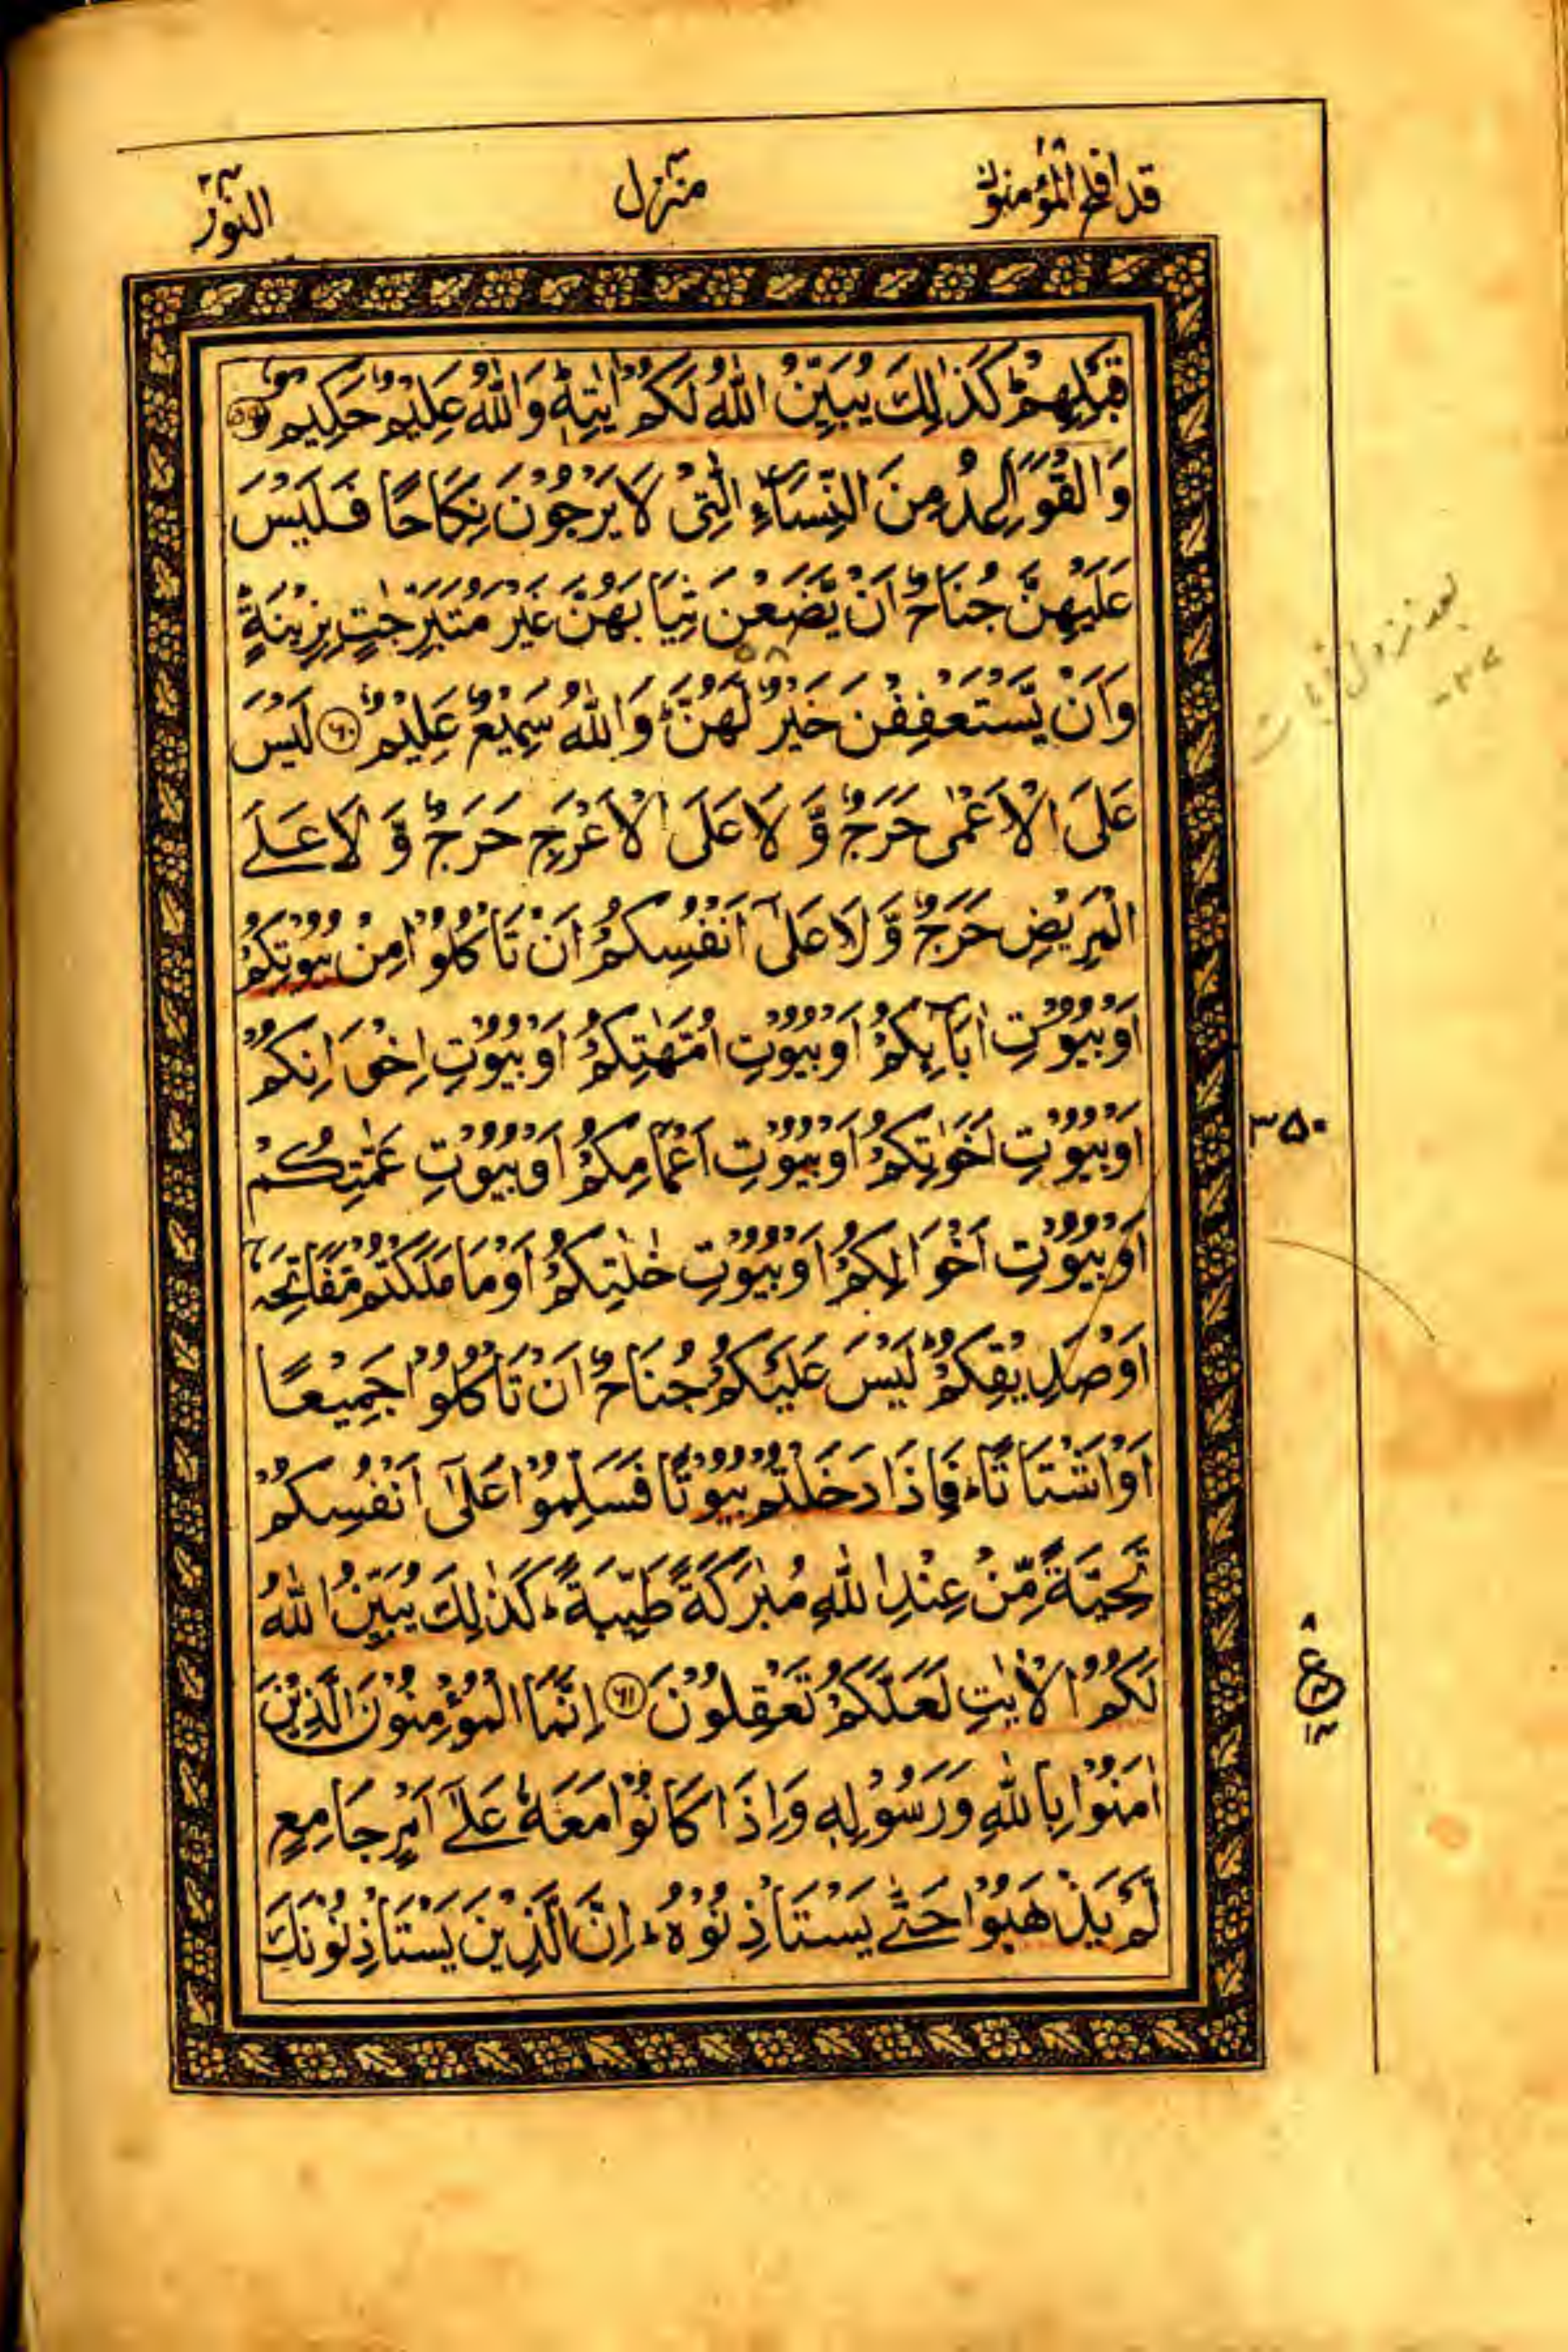 قد افلح المؤمنون ١٨
منزل ٤
النور ٢٤
قَبْلِهِمْ ؕ كَذٰلِكَ يُبَيِّنُ اللّٰهُ لَكُمْ اٰيٰتِهٖ ؕ وَاللّٰهُ عَلِيْمٌ حَكِيْمٌ ﴿۵۹﴾
وَالْقَوَاعِدُ مِنَ النِّسَآءِ الّٰتِيْ لَا يَرْجُوْنَ نِكَاحًا فَلَيْسَ
عَلَيْهِنَّ جُنَاحٌ اَنْ يَّضَعْنَ ثِيَابَهُنَّ غَيْرَ مُتَبَرِّجٰتٍۭ بِزِيْنَةٍ ؕ
وَاَنْ يَّسْتَعْفِفْنَ خَيْرٌ لَّهُنَّ ؕ وَاللّٰهُ سَمِيْعٌ عَلِيْمٌ ﴿۶۰﴾ لَيْسَ
عَلَى الْاَعْمٰى حَرَجٌ وَّ لَا عَلَى الْاَعْرَجِ حَرَجٌ وَّ لَا عَلَى
الْمَرِيْضِ حَرَجٌ وَّ لَا عَلٰٓى اَنْفُسِكُمْ اَنْ تَاْكُلُوْا مِنْۢ بُيُوْتِكُمْ
اَوْ بُيُوْتِ اٰبَآئِكُمْ اَوْ بُيُوْتِ اُمَّهٰتِكُمْ اَوْ بُيُوْتِ اِخْوَانِكُمْ
اَوْ بُيُوْتِ اَخَوٰتِكُمْ اَوْ بُيُوْتِ اَعْمَامِكُمْ اَوْ بُيُوْتِ عَمّٰتِكُمْ
اَوْ بُيُوْتِ اَخْوَالِكُمْ اَوْ بُيُوْتِ خٰلٰتِكُمْ اَوْ مَا مَلَكْتُمْ مَّفَاتِحَهٗٓ
اَوْ صَدِيْقِكُمْ ؕ لَيْسَ عَلَيْكُمْ جُنَاحٌ اَنْ تَاْكُلُوْا جَمِيْعًا
اَوْ اَشْتَاتًا ؕ فَاِذَا دَخَلْتُمْ بُيُوْتًا فَسَلِّمُوْا عَلٰٓى اَنْفُسِكُمْ
تَحِيَّةً مِّنْ عِنْدِ اللّٰهِ مُبٰرَكَةً طَيِّبَةً ؕ كَذٰلِكَ يُبَيِّنُ اللّٰهُ
لَكُمُ الْاٰيٰتِ لَعَلَّكُمْ تَعْقِلُوْنَ ﴿۶۱﴾ اِنَّمَا الْمُؤْمِنُوْنَ الَّذِيْنَ
اٰمَنُوْا بِاللّٰهِ وَرَسُوْلِهٖ وَاِذَا كَانُوْا مَعَهٗ عَلٰٓى اَمْرٍ جَامِعٍ
لَّمْ يَذْهَبُوْا حَتّٰى يَسْتَاْذِنُوْهُ ؕ اِنَّ الَّذِيْنَ يَسْتَاْذِنُوْنَكَ
بعد نزول
۳۵۰
۸
ع
۱۴